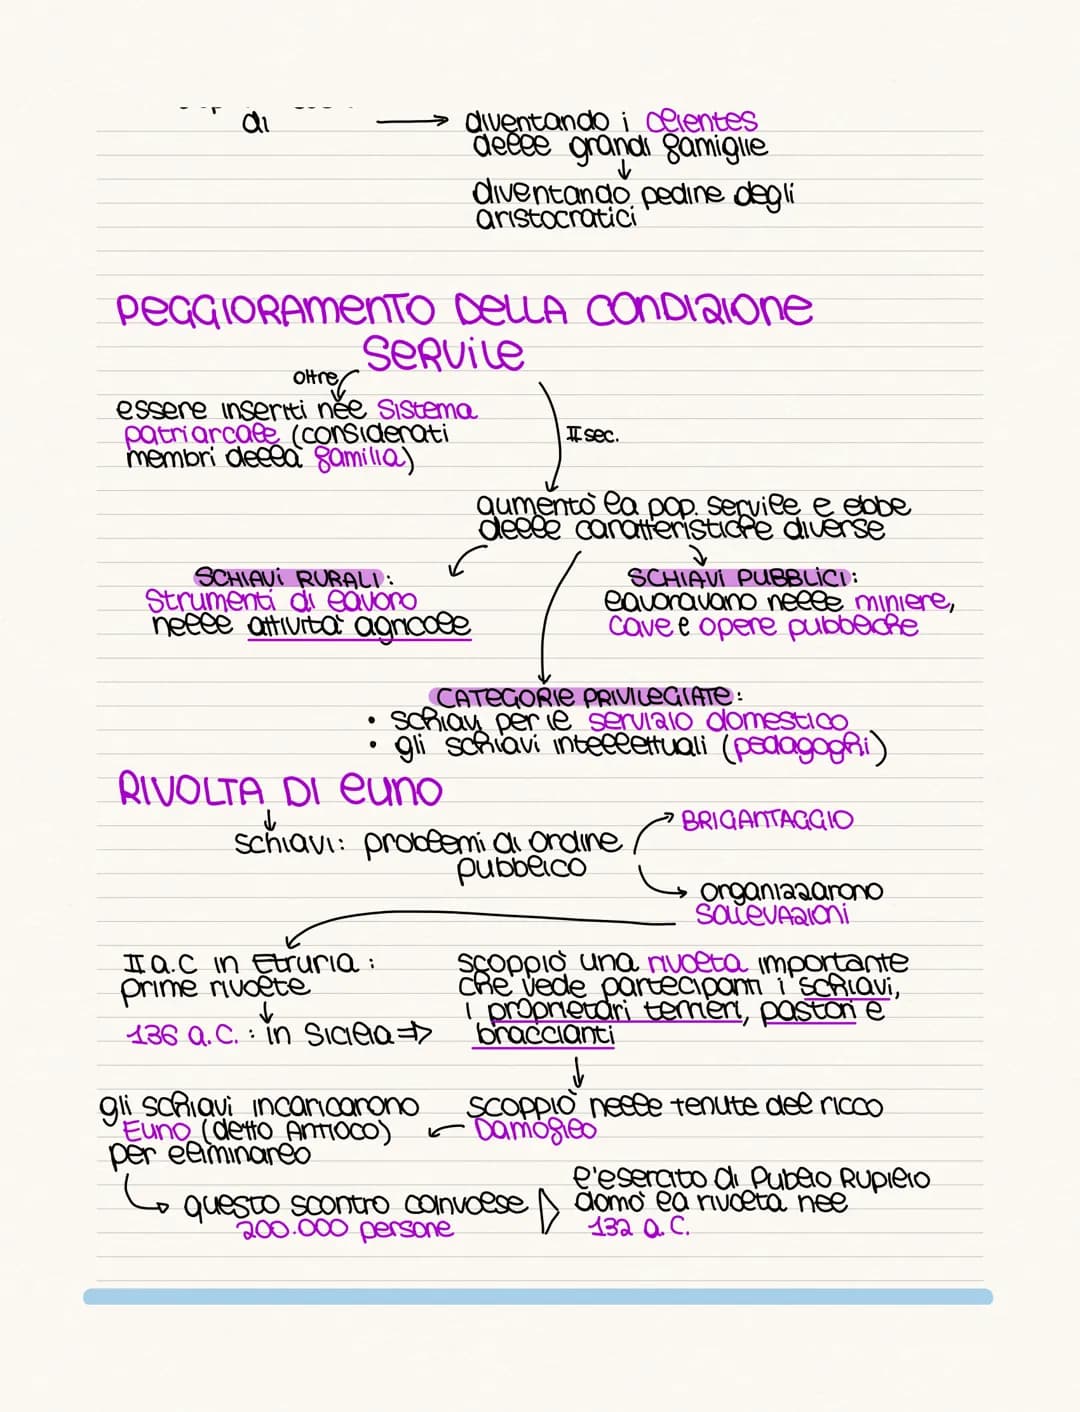 di → diventando i clientes
delle grandi famiglie
↓
diventando pedine degli
aristocratici
PEGGIORAMENTO DELLA CONDIZIONE
SERVILE
oltre
essere inseriti nel sistema
patriarcale (considerati
membri della familia)
II sec.
aumentò la pop. servile e ebbe
delle caratteristiche diverse
SCHIAVI RURALI:
Strumenti di lavoro
nelle attività agricole
SCHIAVI PUBBLICI:
lavoravano nelle miniere,
cave e opere pubbliche
CATEGORIE PRIVILEGIATE:
• schiavi per ie servizio domestico
• gli schiavi intellettuali (pedagoghi)
RIVOLTA DI EUNO
↓
schiavi: problemi di ordine
pubblico
→ BRIGANTAGGIO
→ organizzarono
SOLLEVAZIONI
II a.C in Etruria:
prime rivolte
↓
136 a.C.: in Sicilia ⇒
scoppiò una rivolta importante
che vede partecipanti i schiavi,
i proprietari terrieri, pastori e
braccianti
↓
scoppiò nelle tenute del ricco
Damofilo
←
gli schiavi incaricarono
Euno (detto Antioco)
per eliminarlo
→ questo scontro coinvolse
200.000 persone
l'esercito di Publio Rupilio
domò la rivolta nel
132 a.C.